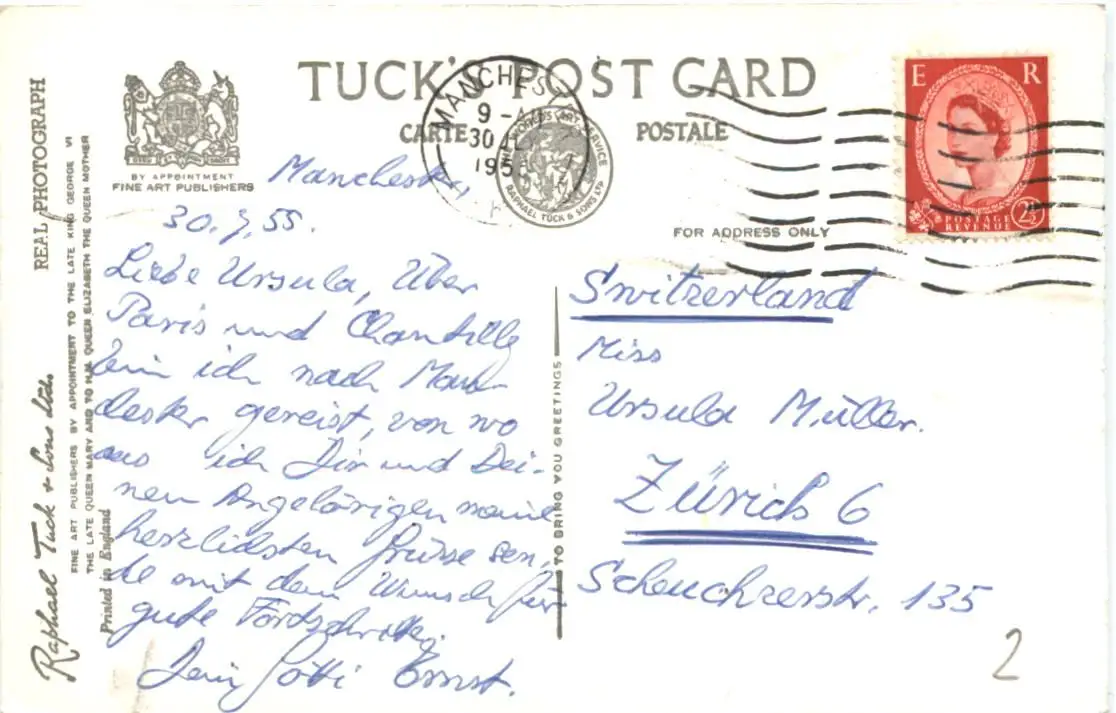 TUCK'S POST CARD
CARTE POSTALE
BY APPOINTMENT
FINE ART PUBLISHERS
FOR ADDRESS ONLY
MANCHESTER
9 - A
30
195
WORLD'S ART SERVICE
RAPHAEL TUCK & SONS LTD
E R
POSTAGE
REVENUE
2½
REAL PHOTOGRAPH
Raphael Tuck & Sons Ltd.
FINE ART PUBLISHERS BY APPOINTMENT TO THE LATE KING GEORGE VI
THE LATE QUEEN MARY AND TO H.M. QUEEN ELIZABETH THE QUEEN MOTHER
Printed in England
Manchester,
30.7.55.
Liebe Ursula, Über
Paris und Chantilly
bin ich nach Man-
chester gereist, von wo
aus ich Dir und Dei-
nen Angehörigen meine
herzlichsten Grüsse sen-
de mit dem Wunsch für
gute Fortschritte.
Dein Götti Ernst.
TO BRING YOU GREETINGS
Switzerland
Miss
Ursula Müller.
Zürich 6
Scheuchzerstr. 135
2